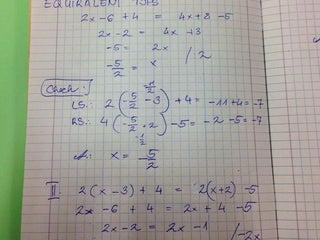 EQUIVALENT
2x - 6 + 4 = 4x + 8 - 5
2x - 2 = 4x + 3
-5 = 2x /:2
-5/2 = x
Check:
LS: 2(-5/2 - 3) + 4 = -11 + 4 = -7
-11/2
RS: 4(-5/2 + 2) - 5 = -2 - 5 = -7
-1/2
A: x = -5/2
II. 2(x - 3) + 4 = 2(x + 2) - 5
2x - 6 + 4 = 2x + 4 - 5
2x - 2 = 2x - 1 /-2x